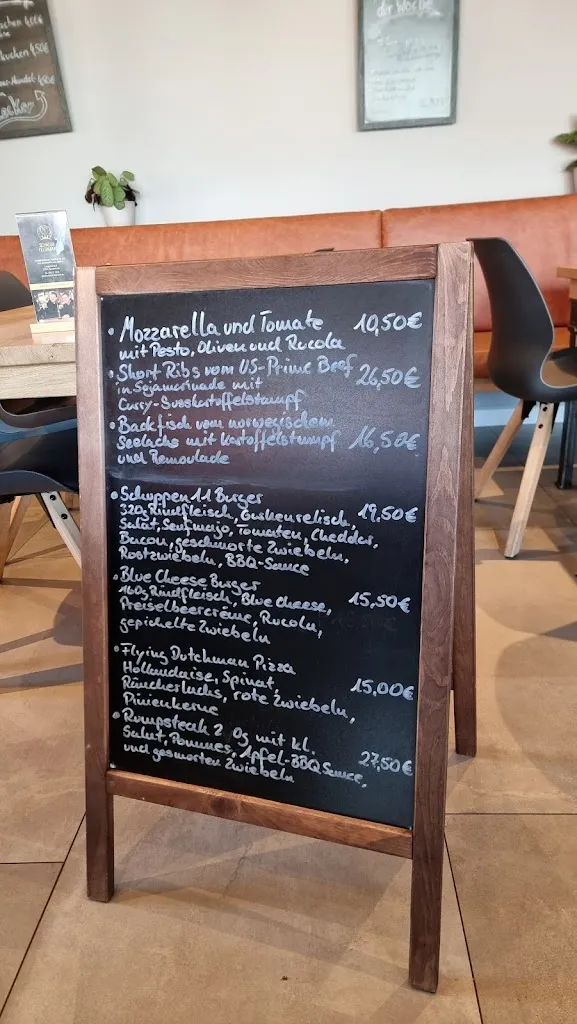 der Woche
kuchen 4,50€
Mozzarella und Tomate 10,50€
mit Pesto, Oliven und Rucola
Short Ribs vom US-Prime Beef 26,50€
in Sojamarinade mit
Curry-Süsskartoffelstampf
Backfisch vom norwegischem
Seelachs mit Kartoffelstampf 16,50€
und Remoulade
Schuppen 11 Burger
320g Rindfleisch, Gurkenrelisch, 19,50€
Salat, Senfmajo, Tomaten, Cheddar,
Bacon, geschmorte Zwiebeln,
Röstzwiebeln, BBQ-Sauce
Blue Cheese Burger
160g Rindfleisch, Blue Cheese, 15,50€
Preiselbeercrème, Rucola,
gepickelte Zwiebeln
Flying Dutchman Pizza
Hollandaise, Spinat, 15,00€
Räucherlachs, rote Zwiebeln,
Pinienkerne
Rumpsteak 2 0g mit kl.
Salat, Pommes, Apfel-BBQ Sauce, 27,50€
und gesmorten Zwiebeln